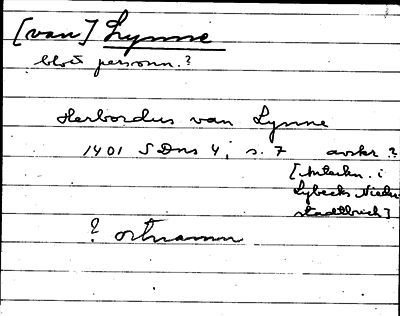 [van] Lynne
blott personn.?
Herbordus van Lynne
1401 SDns 4, s. 7 avskr ?
[Anteckn. i
Lybecks Nieder
stadtbuch]
? ortnamn